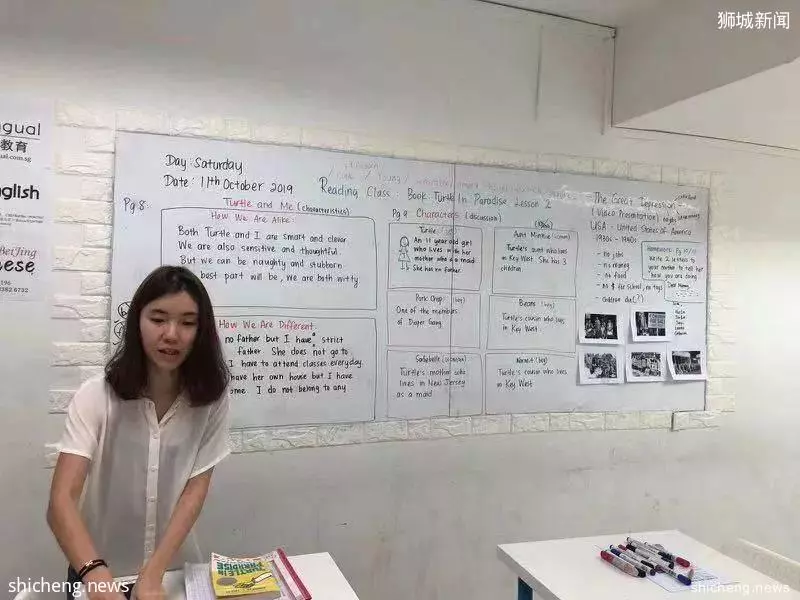 狮城新闻
gual
教育
ual.com.sg
nglish
BeiJing
ese
196
8382 6732
Day: Saturday
Date: 11th October 2019
Reading Class: Book: Turtle In Paradise Lesson 2
Pg 8:
Turtle and Me (characteristics)
How We Are Alike:
Both Turtle and I are smart and clever
We are also sensitive and thoughtful.
But we can be naughty and stubborn
best part will be, we are both witty
How We Are Different:
no father but I have strict
father. She does not go to
I have to attend classes everyday.
have her own house but I have
ome. I do not belong to any
Pg 9 Characters (discussion)
Turtle
An 11 year old girl
who lives with her
mother who is a maid.
She has no father.
Aunt Minnie
Turtle's aunt who lives
in Key West. She has 3
children
Pork Chop (boy)
One of the members
of Diaper Gang
Beans (boy)
Turtle's cousin who lives
in Key West.
Sadiebelle (woman)
Turtle's mother who
lives in New Jersey
as a maid
Kermit (boy)
Turtle's cousin who lives
in Key West
The Great Depression
(Video Presentation)
USA - United States of America
1930s - 1940s
- no jobs
- no money
- no food
- no $ for school, no toys
- children die (?)
Homework: Pg 10/11
Write 2 letters to
your mother to tell her
how you are doing
Dear Mommy,
TURTLE IN
PARADISE
shicheng.news
shicheng.news